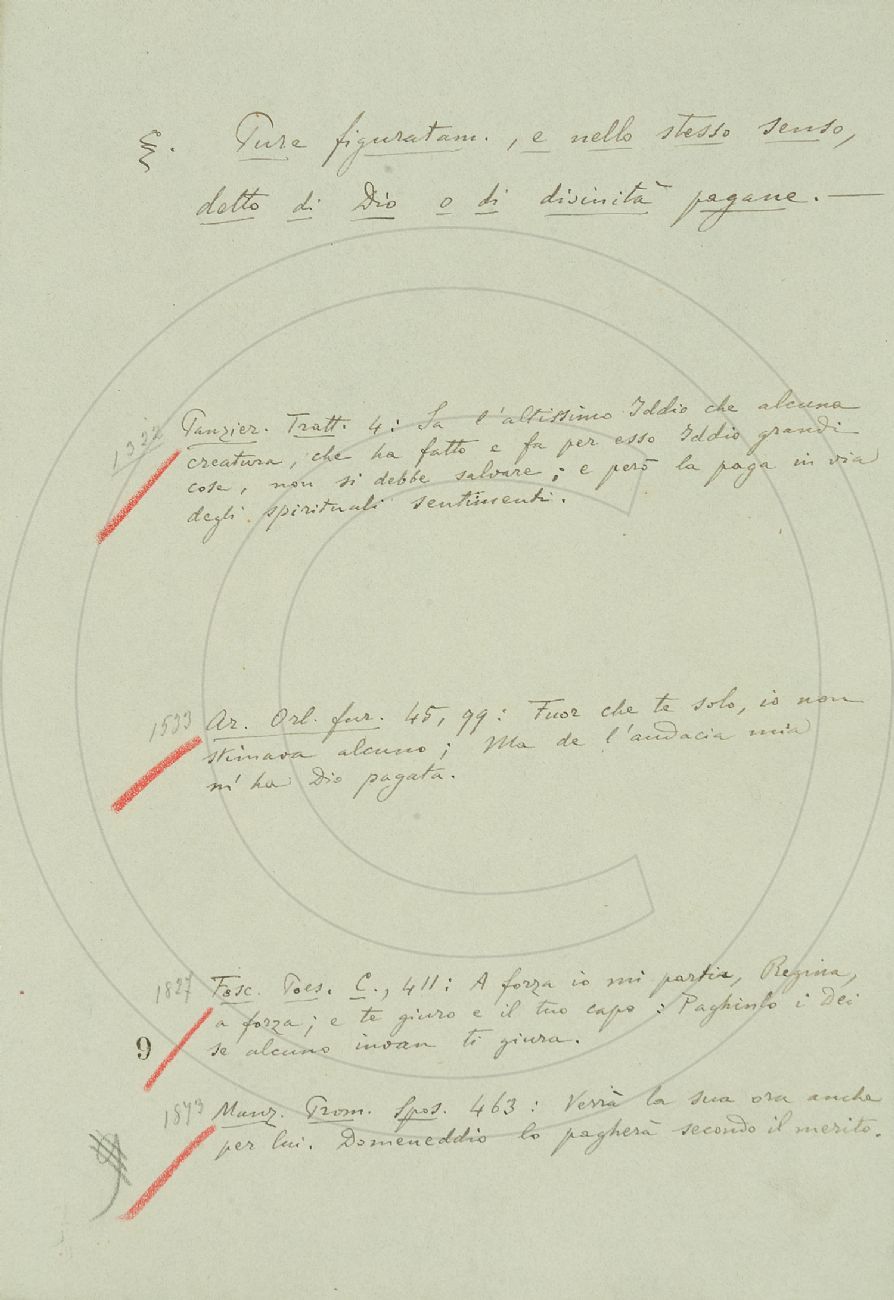 ξ. Pure figuratam., e nello stesso senso,
detto di Dio o di divinità pagane. —
1322 Panzier. Tratt. 4: Sa l'altissimo Iddio che alcuna
creatura, che ha fatto e fa per esso Iddio grandi
cose, non si debbe salvare; e però la paga in via
degli spirituali sentimenti.
1533 Ar. Orl. fur. 45, 99: Fuor che te solo, io non
stimava alcuno; Ma de l'audacia mia
m'ha Dio pagata.
1827 Fosc. Poes. C., 411: A forza io mi partia, Regina,
a forza; e te giuro e il tuo capo: Paghinlo i Dei
9 se alcuno invan ti giura.
1873 Manz. Prom. Spos. 463: Verrà la sua ora anche
per lui. Domeneddio lo pagherà secondo il merito.